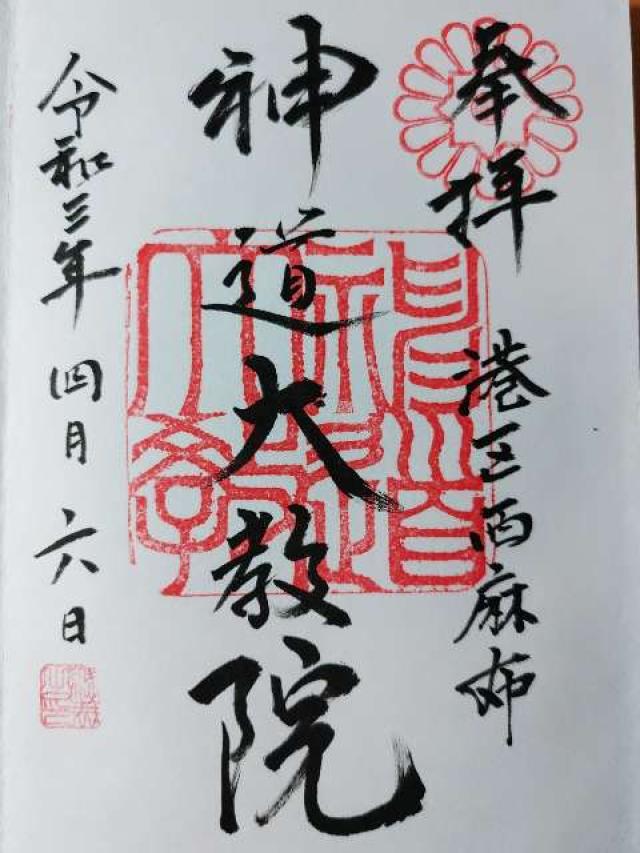 奉拝
港区西麻布
神道大教院
令和三年四月六日